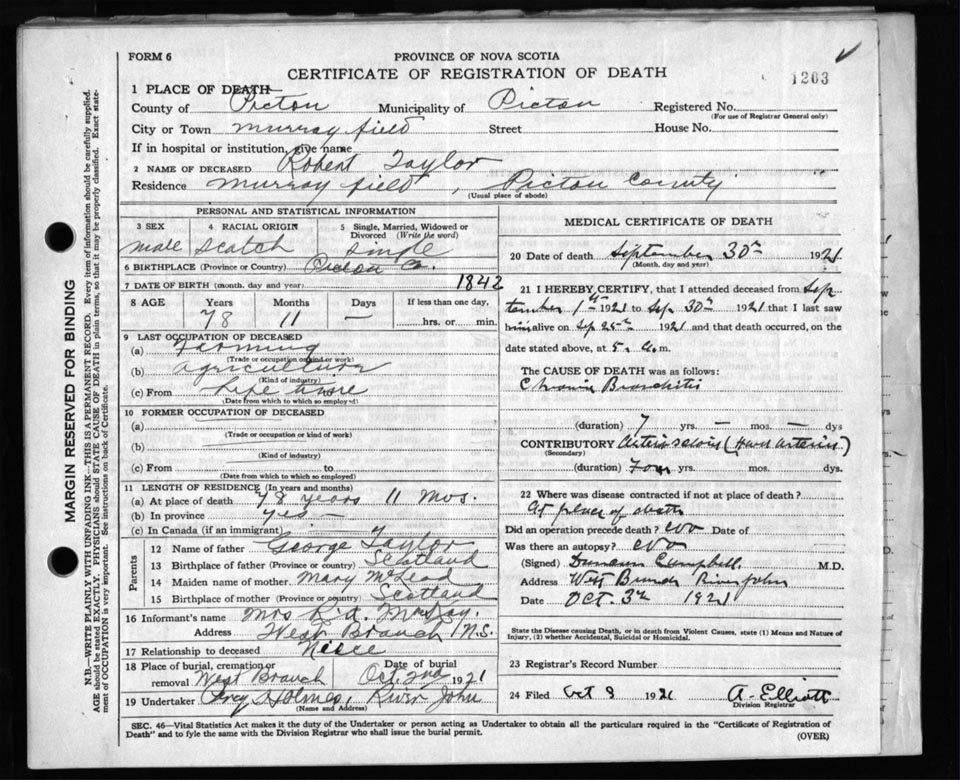 FORM 6
PROVINCE OF NOVA SCOTIA
CERTIFICATE OF REGISTRATION OF DEATH
1203
1 PLACE OF DEATH
County of Picton Municipality of Picton Registered No.
(For use of Registrar General only)
City or Town Murray field Street House No.
If in hospital or institution, give name
2 NAME OF DECEASED Robert Taylor
Residence Murray field, Picton County
(Usual place of abode)
PERSONAL AND STATISTICAL INFORMATION
3 SEX 4 RACIAL ORIGIN 5 Single, Married, Widowed or Divorced (Write the word)
male Scotch Single
6 BIRTHPLACE (Province or Country) Picton Co.
7 DATE OF BIRTH (month, day and year) 1842
8 AGE Years Months Days If less than one day,
78 11 — hrs. or min.
9 LAST OCCUPATION OF DECEASED
(a) Farming
(Trade or occupation or kind of work)
(b) agriculture
(Kind of industry)
(c) From
(Date from which to which so employed)
10 FORMER OCCUPATION OF DECEASED
(a)
(Trade or occupation or kind of work)
(b)
(Kind of industry)
(c) From to
(Date from which to which so employed)
11 LENGTH OF RESIDENCE (In years and months)
(a) At place of death 78 years 11 mos.
(b) In province yes —
(c) In Canada (if an immigrant)
Parents
12 Name of father George Taylor
13 Birthplace of father (Province or country) Scotland
14 Maiden name of mother Mary McLeod
15 Birthplace of mother (Province or country) Scotland
16 Informant's name Mrs R. A.
Address West Branch N.S.
17 Relationship to deceased Niece
18 Place of burial, cremation or removal West Branch Date of burial Oct. 2nd 1921
19 Undertaker Percy Holmes, River John
(Name and Address)
MEDICAL CERTIFICATE OF DEATH
20 Date of death September 30th 1921
(Month, day and year)
21 I HEREBY CERTIFY, that I attended deceased from Sep
tember 1st 1921 to Sep 30th 1921 that I last saw
him alive on Sep 25th 1921 and that death occurred, on the
date stated above, at 5 a.m.
The CAUSE OF DEATH was as follows:
Chronic Bronchitis
(duration) 7 yrs. — mos. — dys
CONTRIBUTORY (Hard arteries)
(Secondary)
(duration) Four yrs. mos. dys.
22 Where was disease contracted if not at place of death?
At place of death
Did an operation precede death? No Date of
Was there an autopsy? No
(Signed) Duncan Campbell M.D.
Address West Branch River John
Date Oct. 3rd 1921
State the Disease causing Death, or in death from Violent Causes, state (1) Means and Nature of
Injury, (2) whether Accidental, Suicidal or Homicidal.
23 Registrar's Record Number
24 Filed Oct 8 1921 A. Elliott
Division Registrar
SEC. 46—Vital Statistics Act makes it the duty of the Undertaker or person acting as Undertaker to obtain all the particulars required in the "Certificate of Registration of
Death" and to fyle the same with the Division Registrar who shall issue the burial permit.
(OVER)
MARGIN RESERVED FOR BINDING
N.B.—WRITE PLAINLY WITH UNFADING INK—THIS IS A PERMANENT RECORD. Every item of information should be carefully supplied.
AGE should be stated EXACTLY. PHYSICIANS should STATE CAUSE OF DEATH in plain terms, so that it may be properly classified. Exact state-
ment of OCCUPATION is very important. See instructions on back of Certificate.